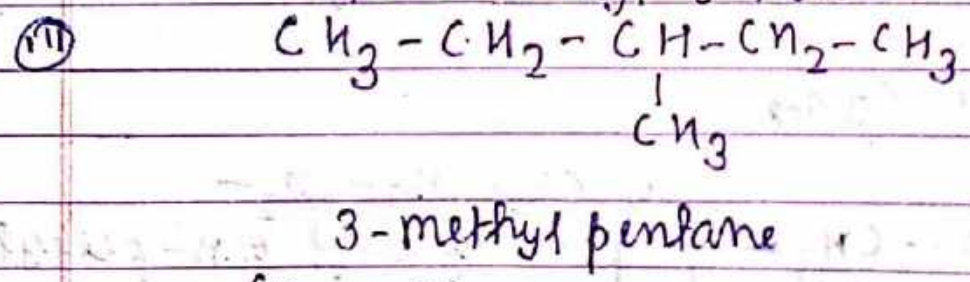 (iii) CH3 - CH2 - CH - CH2 - CH3
|
CH3
3-methyl pentane